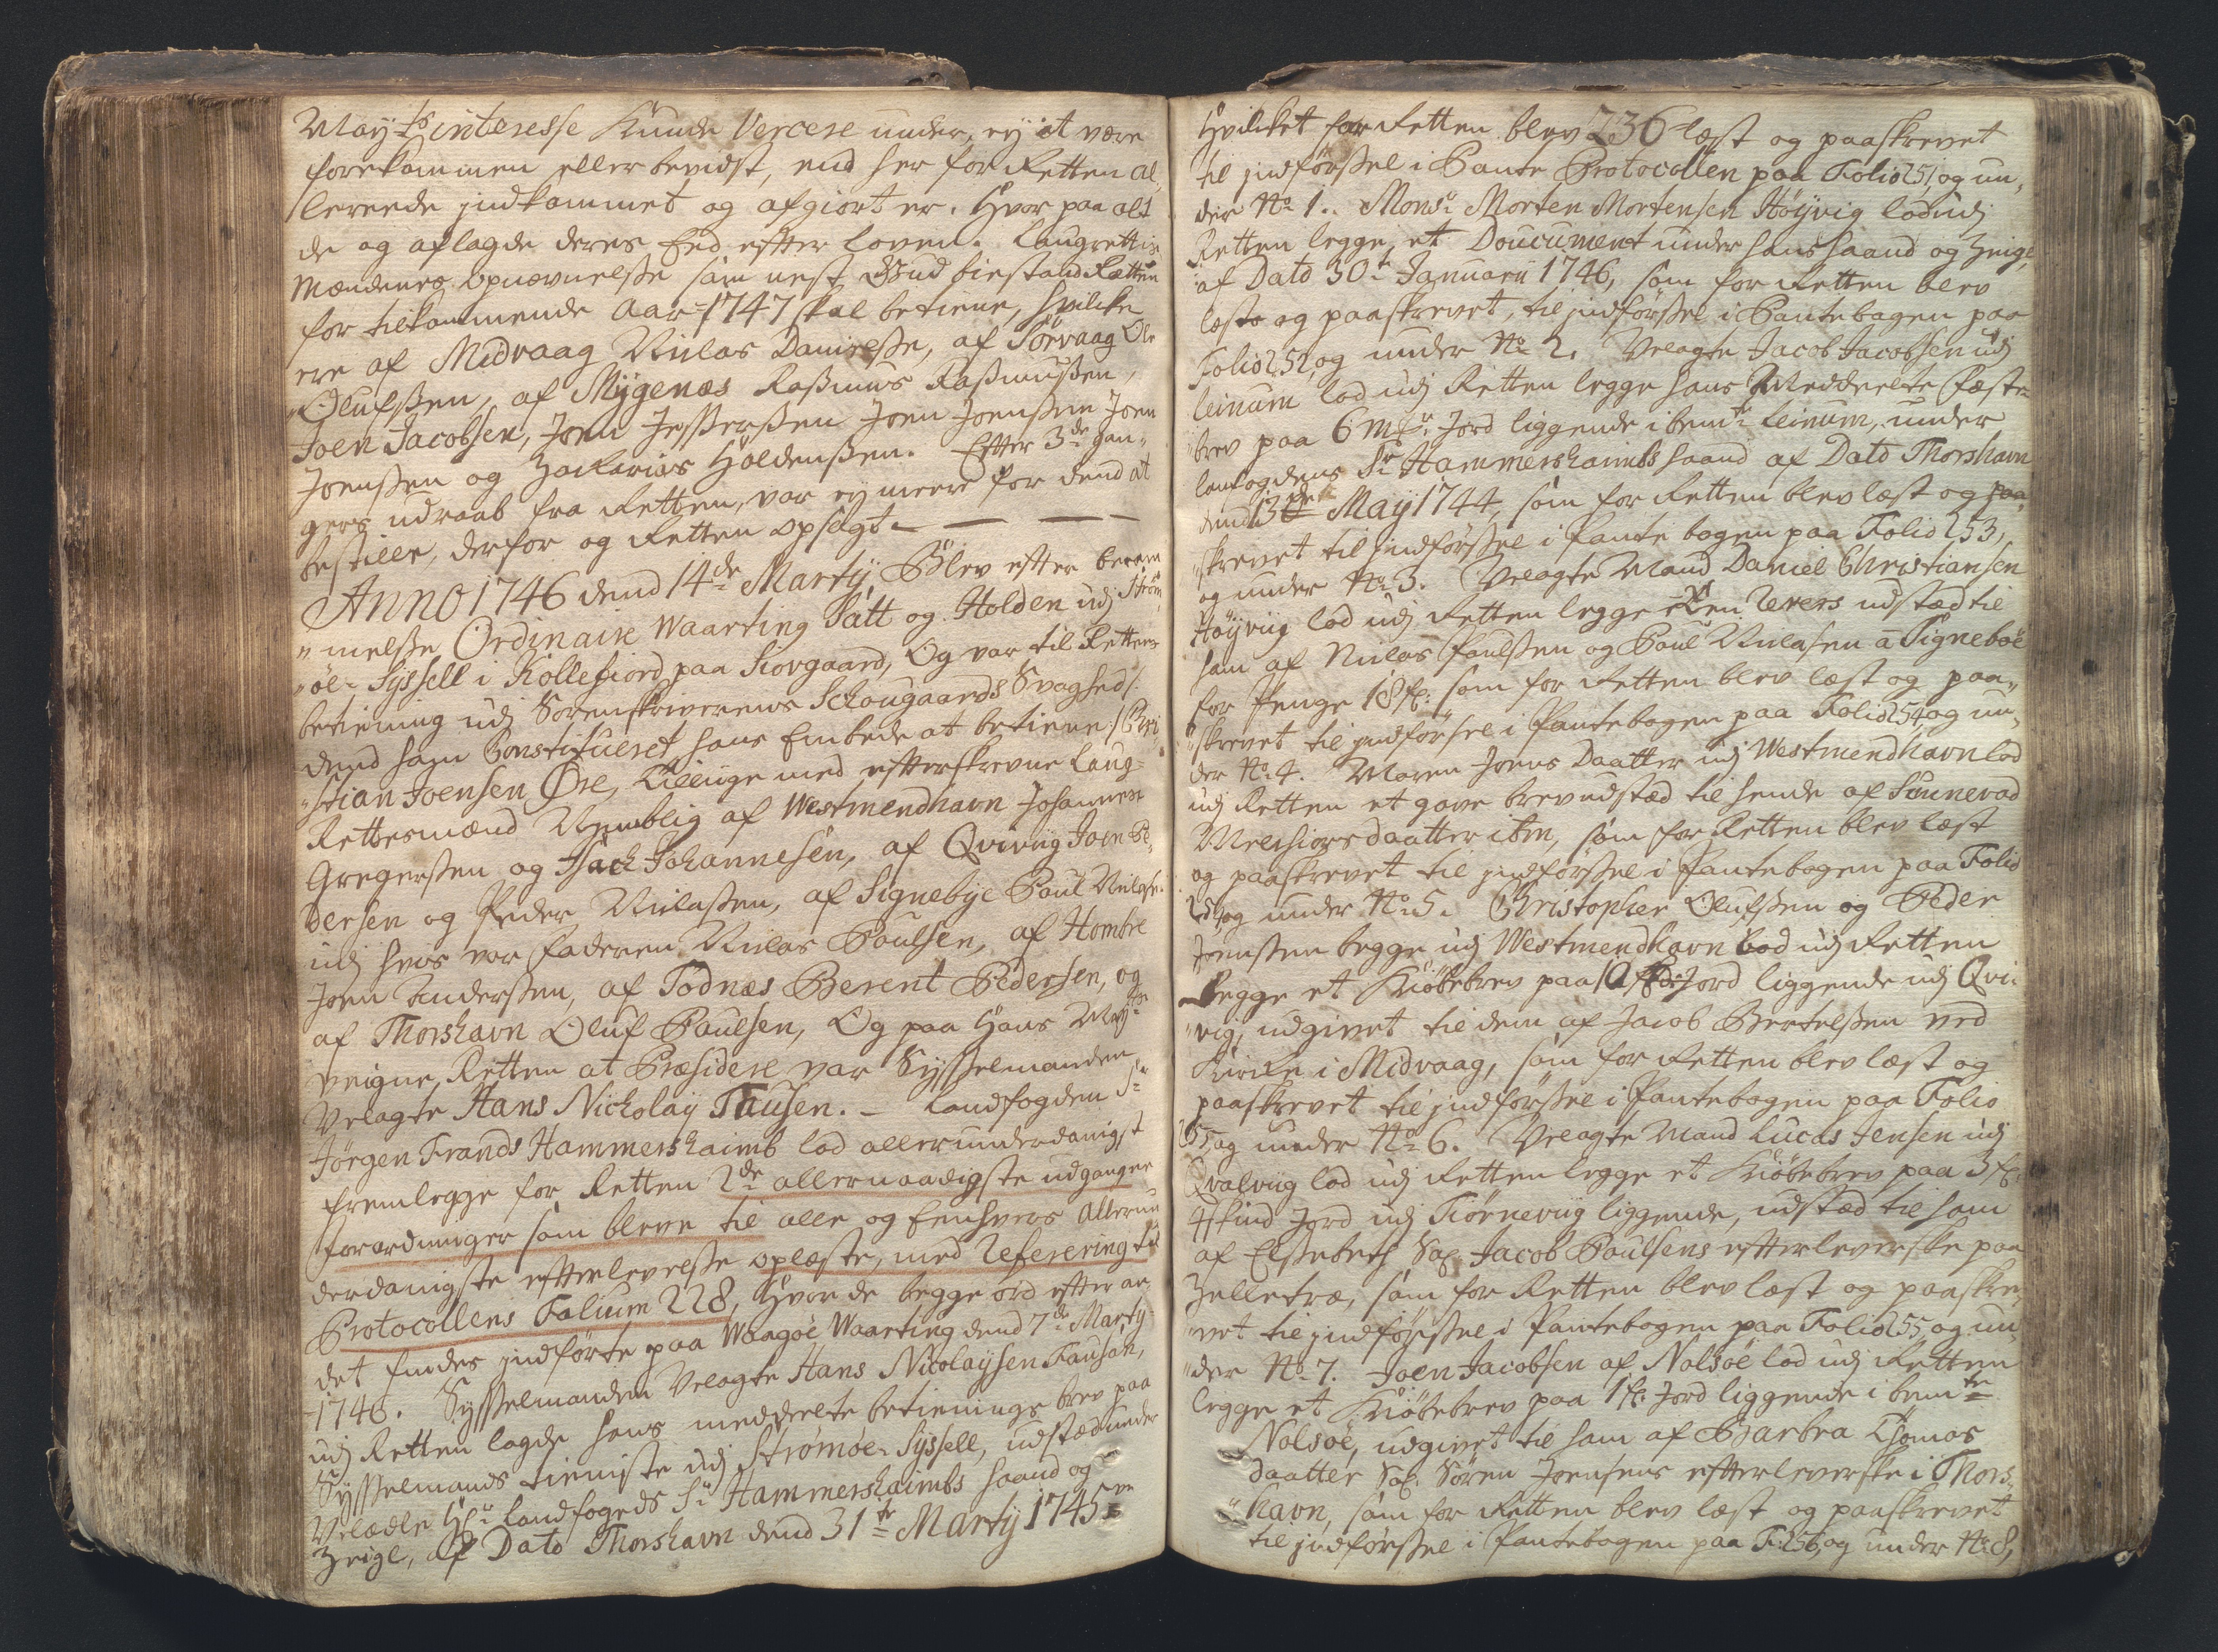 May:ts interesse kunde Vercere under, ey at være
forekommen eller bevidst, end her for Retten al¬
lereede indkommet og afgiort er. Hvor paa alt
de og aflagde deres Eed efter loven. Laugrettis
Mændenes opnævnelse som nest Gud bistand Retten
for tilkommende Aar 1747 skal betiene, hvilcke
ere af Midvaag Niclas Danielsse, af Sørvaag Ole
Olufssen, af Mygenæs Rasmus Rasmussen,
Joen Jacobsen, Joen Jesserssen Joen Joenssen Joen
Joenssen og Zacharias Holdenssen. Efter 3de gan¬
gers udraab fra Retten, var ey meere for dend at
bestille, derfor og Retten opsagt —
Anno 1746 dend 14de Martÿ Blev efter beram
„melse Ordinaire Waarting Satt og Holden udj Strøm
„øe-Syssell i Kollefiord paa Siovgaard, Og var til Rettens
betiening udj Sorenskriverens Schougaards Svaghed /:
dend ham Constitueret hans Embede at betiene :/ Chri
„stian Joensen Øre, tillige med efterskrevne Laug-
Rettesmænd Nemblig af Westmendhavn Johannes
Gregerssen og Isach Johannesen, af Qvivig Joen Pe¬
dersen og Peder Niclassen, af Signebye Poul Niclasen
udj hvis var faderen Niclas Poulsen, af Hombre
Joen Anderssen, af Todnæs Berent Pedersen, og
af Thorshavn Oluf Poulsen, Og paa Hans May:ts
veigne Retten at Præsidere var Sysselmanden
Velagte Hans Nicholaÿ Tausen. – Landfogden Sr
Jørgen Frands Hammershaimb lod allerunderdanigst
fremlegge for Retten 2de allernaadigste udgangne
forordninger som bleve til alle og Eenhvers Allerun
derdanigste efterlevelse oplæste, med Referering til
Protocollens Folium 228, Hvor de begge ord efter an¬
det findes indførte paa Waagøe Waarting dend 7de Martÿ
1746. Sysselmanden Velagte Hans Nicolaysen Tausan,
udj Retten lagde hans meddeelte betienings brev paa
Sysselmands tieniste udj Strømøe-Syssell, udstæd under
Velædle Hr Landfogeds Sr Hammershaimbs haand og
Zeigl, af Dato Thorshavn dend 31te Martÿ 1745
Hvilcket for Retten blev 236 læst og paaskrevet
til indførssel i Pante Protocollen paa Folio 251, og un¬
der No 1. Monsr Morten Mortensen Høyvig lod udj
Retten legge, et Doucument under hans haand og Zeigl,
af Dato 30te Januarii 1746, som for Retten blev
læste og paaskrevet, til indførssel i Pantebogen paa
Folio 252, og under No 2. Velagte Jacob Jacobsen udj
Leinum lod udj Retten legge hans Meddeelte fæste-
„brev paa 6 mr: Jord liggende i bemte Leinum, under
Landfogdens Sr Hammershaimbs haand af Dato Thorshavn
dend 13de May 1744, som for Retten blev læst og paa¬
„skrevet til indførssel i Pante bogen paa Folio 253,
og under No 3. Velagte Mand Daniel Christiansen
Høyviig lod udj Retten legge en Revers udstæd til
ham af Niclas Poulssen og Poul Niclasen a Signeboe
for Penge 18 f: som for Retten blev læst og paa¬
„skrevet til indførsel i Pantebogen paa Folio 254 og un¬
der No 4. Maren Joens Daatter udj Westmendhavn lod
udj Retten et gave brev udstæd til hende af Sunnevad
Melchiorsdaatter ibm, som for Retten blev læst
og paaskrevet til indførssel i Pantebogen paa Folio
254, og under No 5. Christopher Olufssen og Peder
Joenssen begge udj Westmendhavn lod udj Retten
Legge et Kiøbebrev paa 10 skd: Jord liggende udj Qvi¬
„vig, udgivet til dem af Jacob Bertelssen ved
Kircke i Midvaag, som for Retten blev læst og
paaskrevet til indførssel i Pantebogen paa Folio
255, og under No 6. Velagte Mand Lucas Jensen udj
Qvalviig lod udj Retten legge et Kiøbebrev paa 3 f:
4 skind Jord udj Tiørneviig liggende, udstæd til ham
af Elssebeth Sal. Jacob Poulsens efterleverske paa
Zelletræ, som for Retten blev læst og paaskre¬
„vet til indførssel i Pantebogen paa Folio 255, og un¬
„der No 7. Joen Jacobsen af Nolsøe lod udj Retten
legge et Kiøbebrev paa 1 f: Jord liggende i bemte
Nolsøe, udgivet til ham af Barbra Thomas
daatter Sal. Søren Joensens efterleverske i Thors¬
„havn, som for Retten blev læst og paaskrevet
til indførssel i Pantebogen paa F: 256, og under No 8,